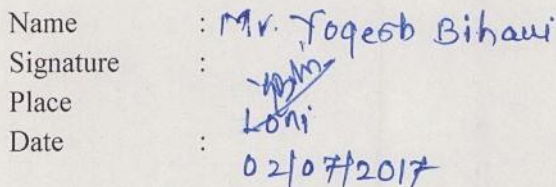 Name : Mr. Yogesh Bihani
Signature :
Place Loni
Date : 02/07/2017